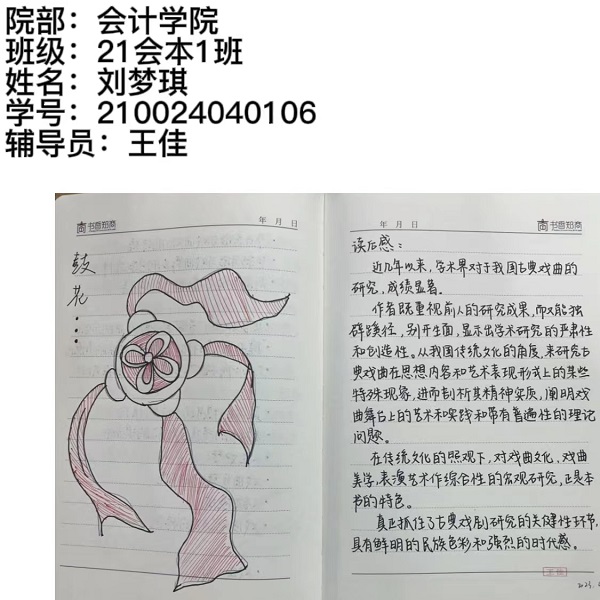 院部：会计学院
班级：21会本1班
姓名：刘梦琪
学号：210024040106
辅导员：王佳
书音知商
年 月 日
鼓花
年 月 日
书音知商
读后感：
近几年以来，学术界对于我国古典戏曲的
研究，成绩显著。
作者既重视前人的研究成果，而又能独
辟蹊径，别开生面，显示出学术研究的严肃性
和创造性。从我国传统文化的角度，来研究古
典戏曲在思想内容和艺术表现形式上的某些
特殊现象，进而剖析其精神实质，阐明戏
曲舞台上的艺术和实践和带有普遍性的理论
问题。
在传统文化的照观下，对戏曲文化、戏曲
美学、表演艺术作综合性的宏观研究，正是本
书的特色。
真正抓住了古典戏剧研究的关键性环节，
具有鲜明的民族色彩和强烈的时代感。
2023.